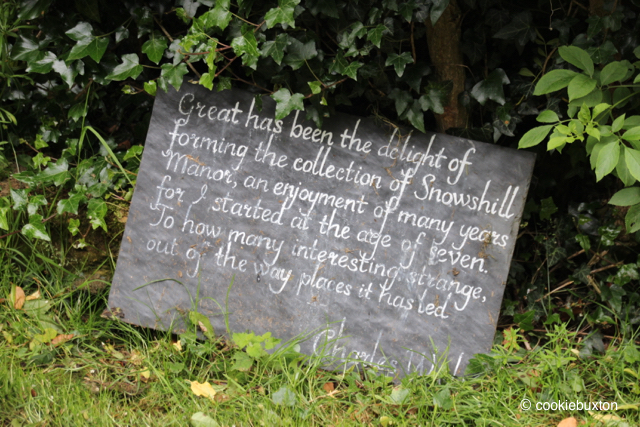 Great has been the delight of
forming the collection of Snowshill
Manor, an enjoyment of many years
for I started at the age of seven.
To how many interesting strange,
out of the way places it has led
Charles
© cookiebuxton